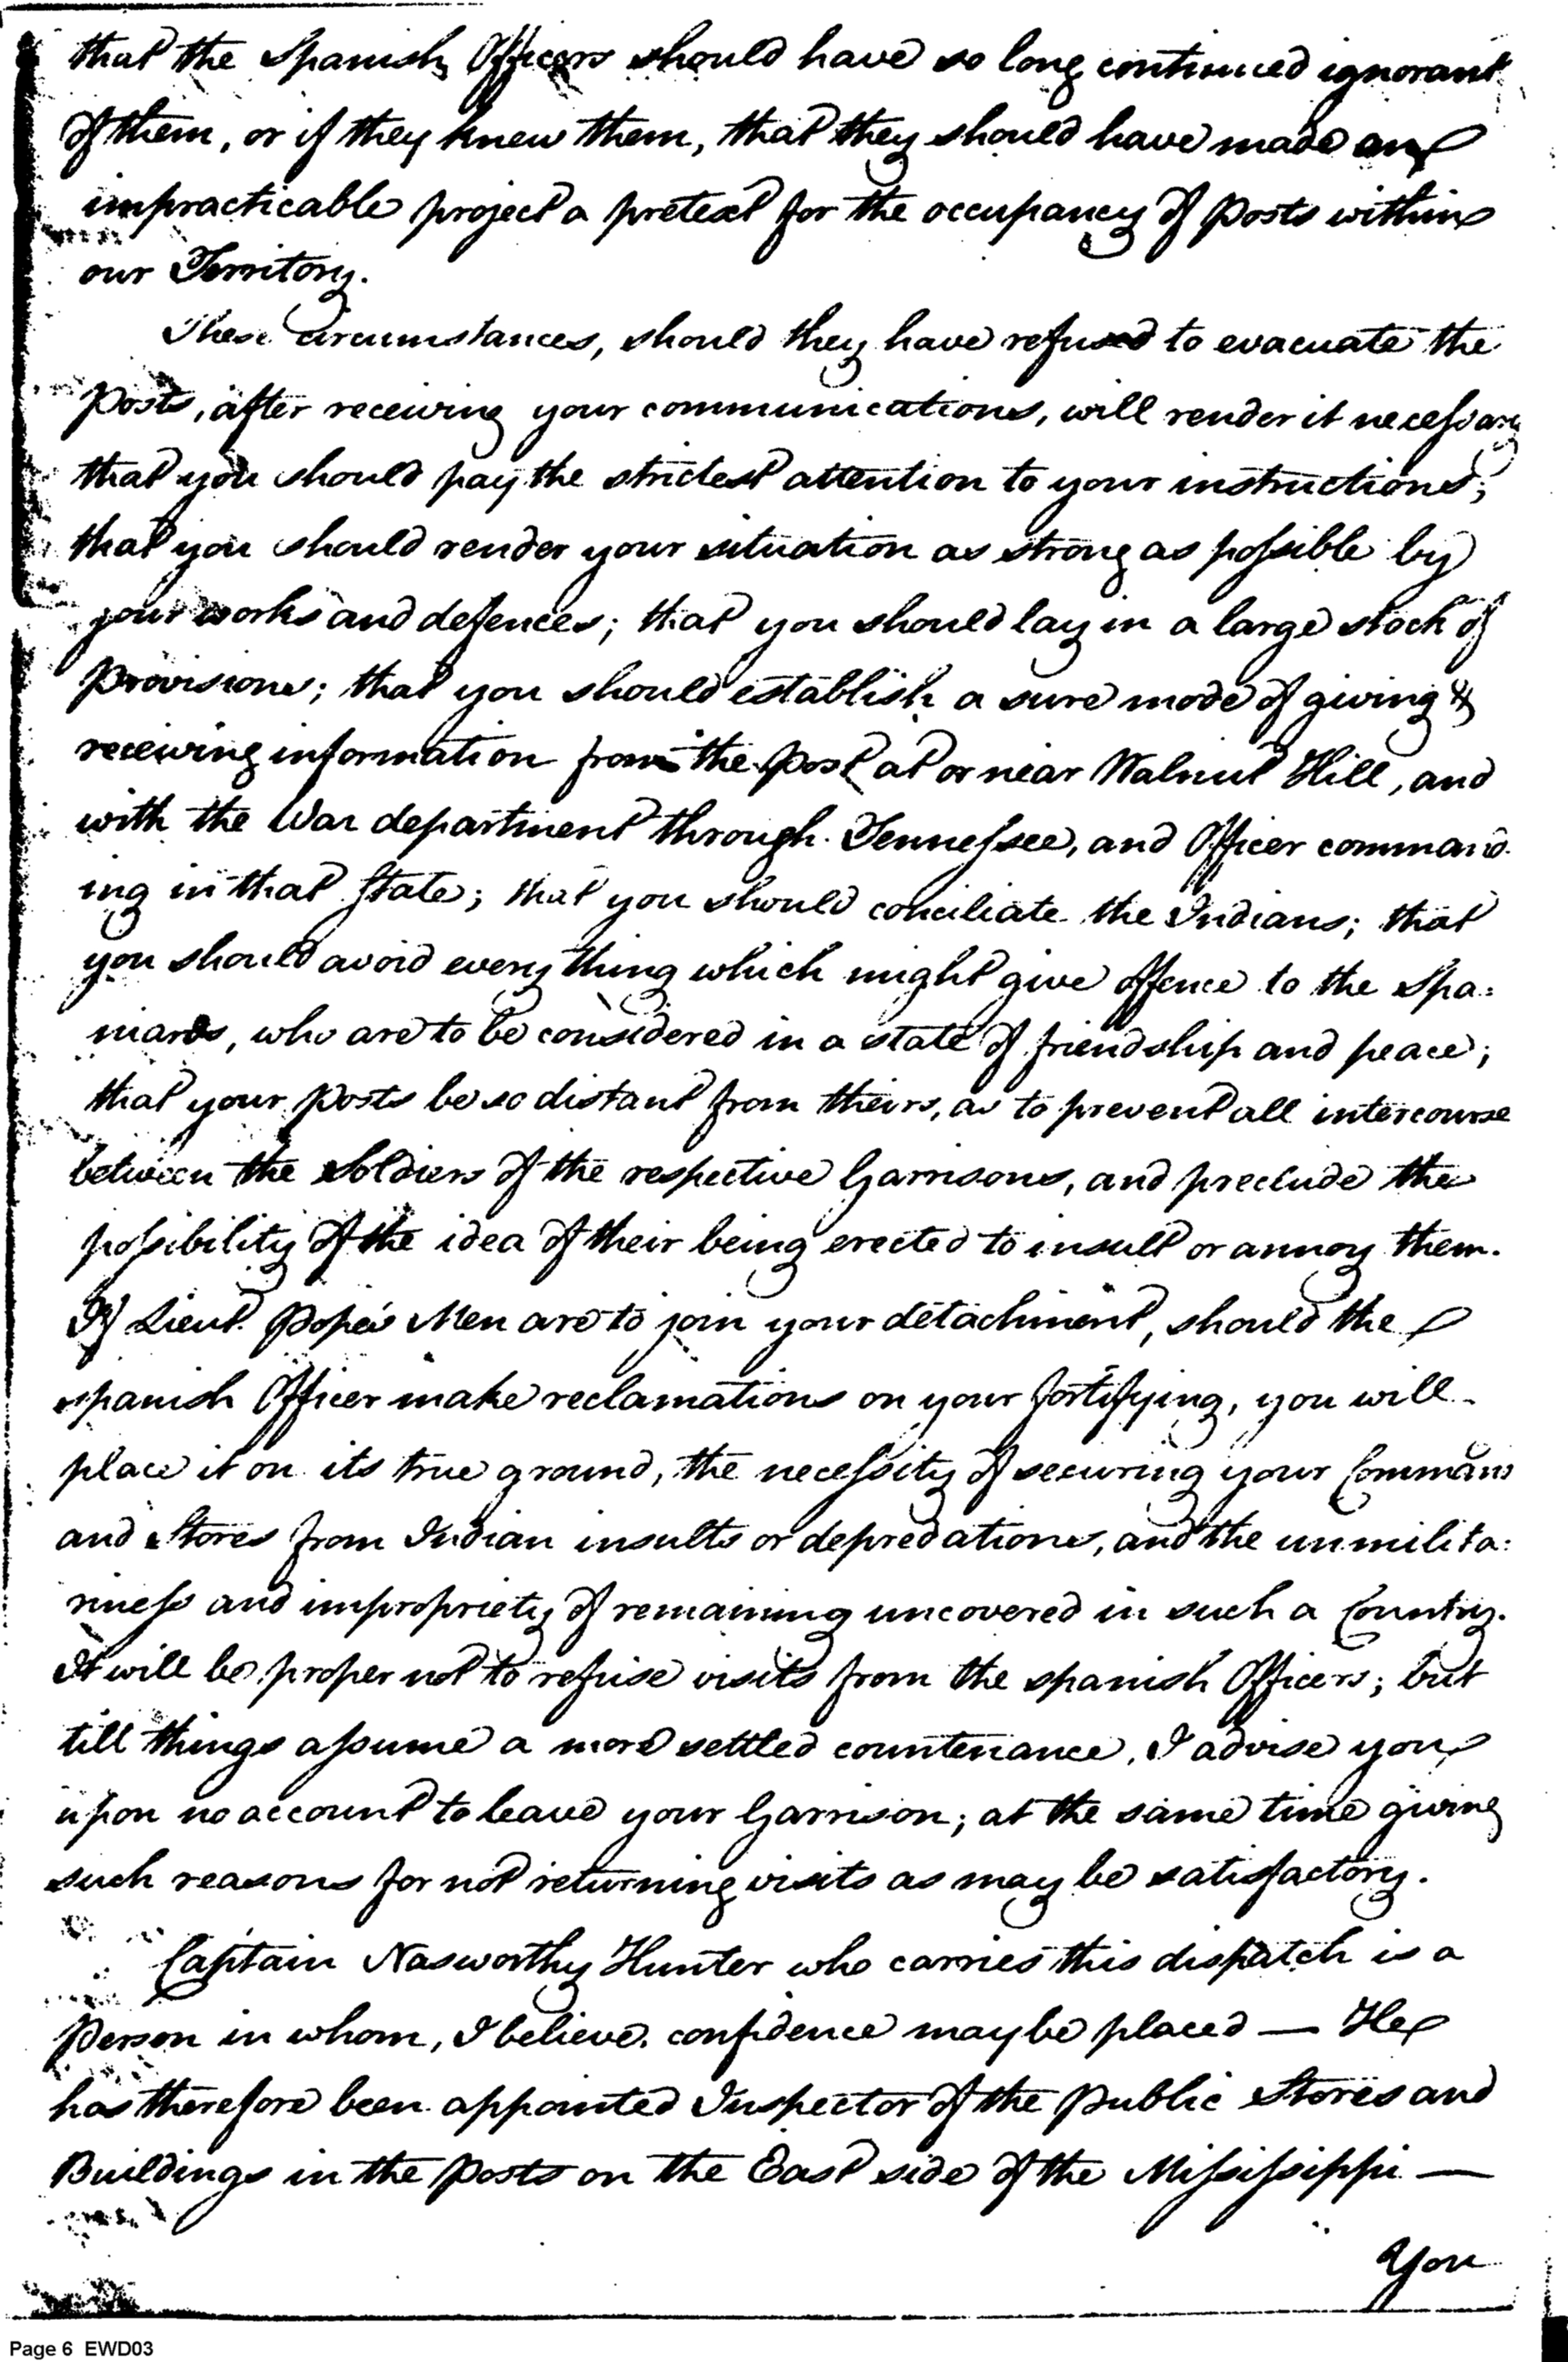 that the Spanish Officers should have so long continued ignorant
of them, or if they knew them, that they should have made an
impracticable project a pretext for the occupancy of Posts within
our Territory.
These circumstances, should they have refused to evacuate the
Posts, after receiving your communications, will render it necessary
that you should pay the strictest attention to your instructions;
that you should render your situation as strong as possible by
your works and defences; that you should lay in a large stock of
Provisions; that you should establish a sure mode of giving &
receiving information from the Post at or near Walnut Hill, and
with the War department through Tennessee, and Officer command
ing in that State; that you should conciliate the Indians; that
you should avoid every thing which might give offence to the Spa:
niards, who are to be considered in a state of friendship and peace;
that your Posts be so distant from theirs, as to prevent all intercourse
between the Soldiers of the respective Garrisons, and preclude the
possibility of the idea of their being erected to insult or annoy them.
If Lieut. Pope's Men are to join your detachment, should the
Spanish Officer make reclamations on your fortifying, you will
place it on its true ground, the necessity of securing your Command
and Stores from Indian insults or depredations, and the unmilita:
riness and impropriety of remaining uncovered in such a Country.
It will be proper not to refuse visits from the Spanish Officers; but
till things assume a more settled countenance, I advise you
upon no account to leave your Garrison; at the same time giving
such reasons for not returning visits as may be satisfactory.
Captain Nasworthy Hunter who carries this dispatch is a
Person in whom, I believe, confidence may be placed — He
has therefore been appointed Inspector of the Public Stores and
Buildings in the Posts on the East side of the Missisippi —
You
Page 6 EWD03